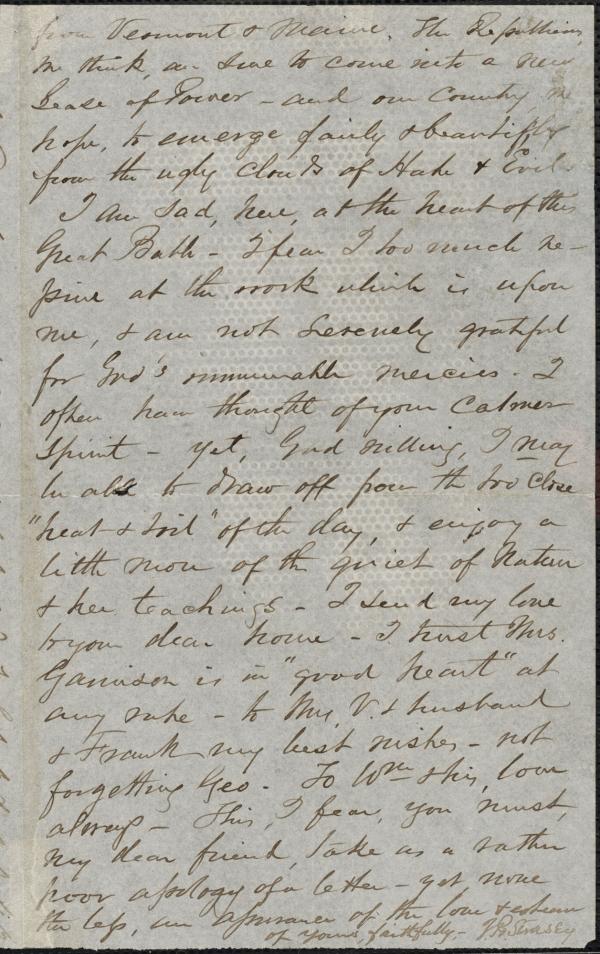 from Vermont & Maine. The Republicans,
we think, are sure to come into a new
Lease of Power – and our Country, we
hope, to emerge fairly & beautifully
from the ugly clouds of Hate & Evil.
I am sad, here, at the heart of this
Great Bable – I fear I too much re-
pine at the work which is upon
me, & am not serenely grateful
for God's innumerable mercies. I
often have thought of your calmer
Spirit – yet, God willing, I may
be able to draw off from the too close
"heat & toil" of the day, & enjoy a
little more of the quiet of Nature
& her teachings – I send my love
to your dear home – I trust Mrs.
Garrison is in "good heart" at
any rate – to Mrs. V. & husband
& Frank my best wishes – not
forgetting Geo. To Wm & his, love
always – This, I fear, you must,
my dear friend, take as a rather
poor apology of a letter – yet none
the less, an assurance of the love & esteem
of yours, faithfully –